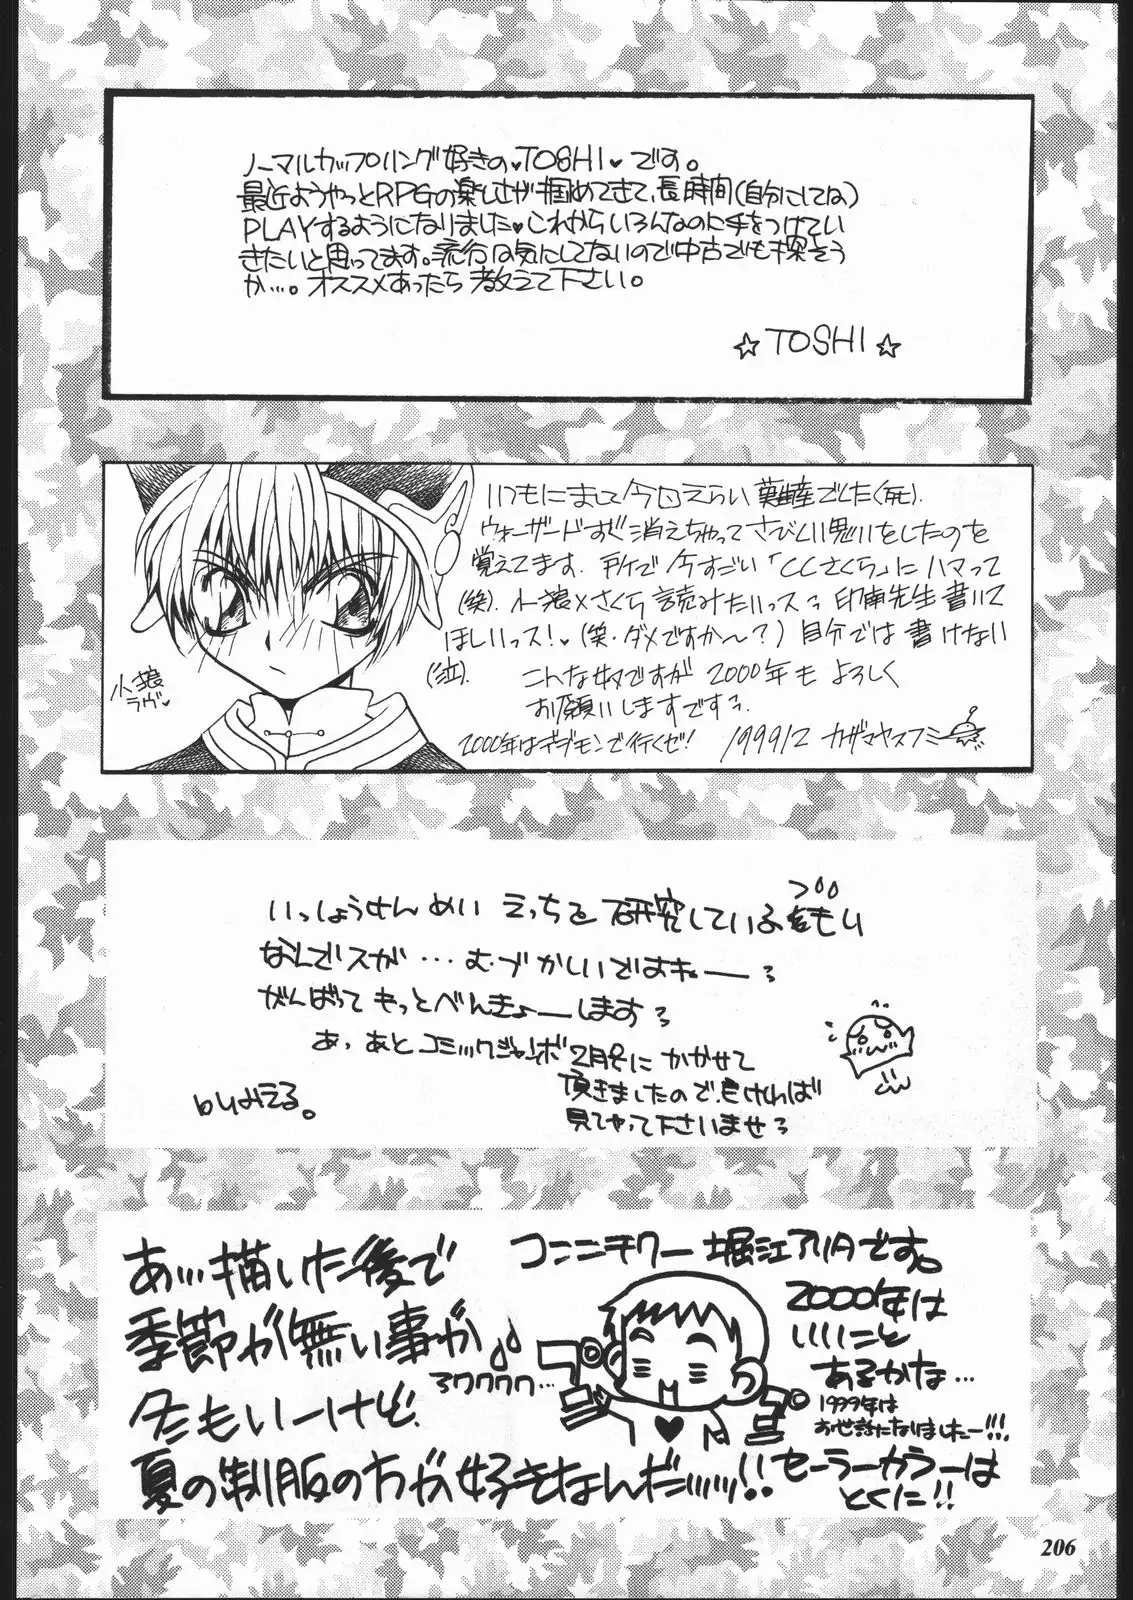 ノーマルカップリング好きの♥TOSHI♥です。
最近ようやっとRPGの楽しさが掴めてきて、長時間(自分にしてね)
PLAYするようになりました♥これからいろんなのに手をつけてい
きたいと思ってます。流行は気にしてないので中古でも探そう
か…。オススメあったら教えて下さい。
☆TOSHI☆
いつもにまして今回えらい難産でした(死).
ウォーザードすぐ消えちゃってさびしい思いをしたのを
覚えてます.所で今すごい「CCさくら」にハマって
(笑).小狼×さくら読みたいっスっ印南先生書いて
ほしいっス!♥(笑・ダメですか〜?)自分では書けない
(泣).
こんな奴ですが2000年もよろしく
お願いしますですっ.
2000年はデジモンで行くゼ!
1999.12 カザマヤスフミ
小狼
ラヴ♥
いっしょうけんめい えっちを研究している
なんでスが…むづかしいですねー
がんばってもっとべんきょーします
あっ あとコミックジャンボ2月号にかかせて
頂きましたので良ければ
見てやって下さいませ
byみえる。
コンニチワー堀江アリタです。
2000年は
いいこと
あるかな…
1999年は
お世話になりましたー!!!
あ…描いた後で
季節が無い事が♪
ろワワワワ…
冬もいーけど、
夏の制服の方が好きなんだッッッ!!
セーラーカラーは
とくに!!
206